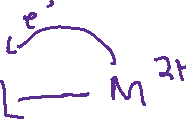 e'
L
L M 2+